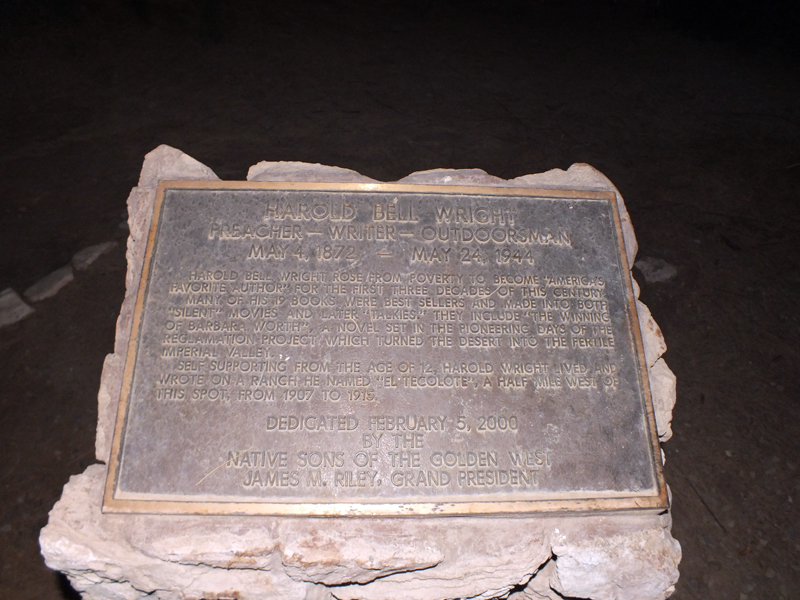 HAROLD BELL WRIGHT
PREACHER — WRITER — OUTDOORSMAN
MAY 4, 1872 — MAY 24, 1944
HAROLD BELL WRIGHT ROSE FROM POVERTY TO BECOME "AMERICA'S
FAVORITE AUTHOR" FOR THE FIRST THREE DECADES OF THIS CENTURY.
MANY OF HIS 19 BOOKS WERE BEST SELLERS AND MADE INTO BOTH
"SILENT" MOVIES AND LATER "TALKIES." THEY INCLUDE "THE WINNING
OF BARBARA WORTH", A NOVEL SET IN THE PIONEERING DAYS OF THE
RECLAMATION PROJECT WHICH TURNED THE DESERT INTO THE FERTILE
IMPERIAL VALLEY.
SELF SUPPORTING FROM THE AGE OF 12, HAROLD WRIGHT LIVED AND
WROTE ON A RANCH HE NAMED "EL TECOLOTE", A HALF MILE WEST OF
THIS SPOT, FROM 1907 TO 1915.
DEDICATED FEBRUARY 5, 2000
BY THE
NATIVE SONS OF THE GOLDEN WEST
JAMES M. RILEY, GRAND PRESIDENT